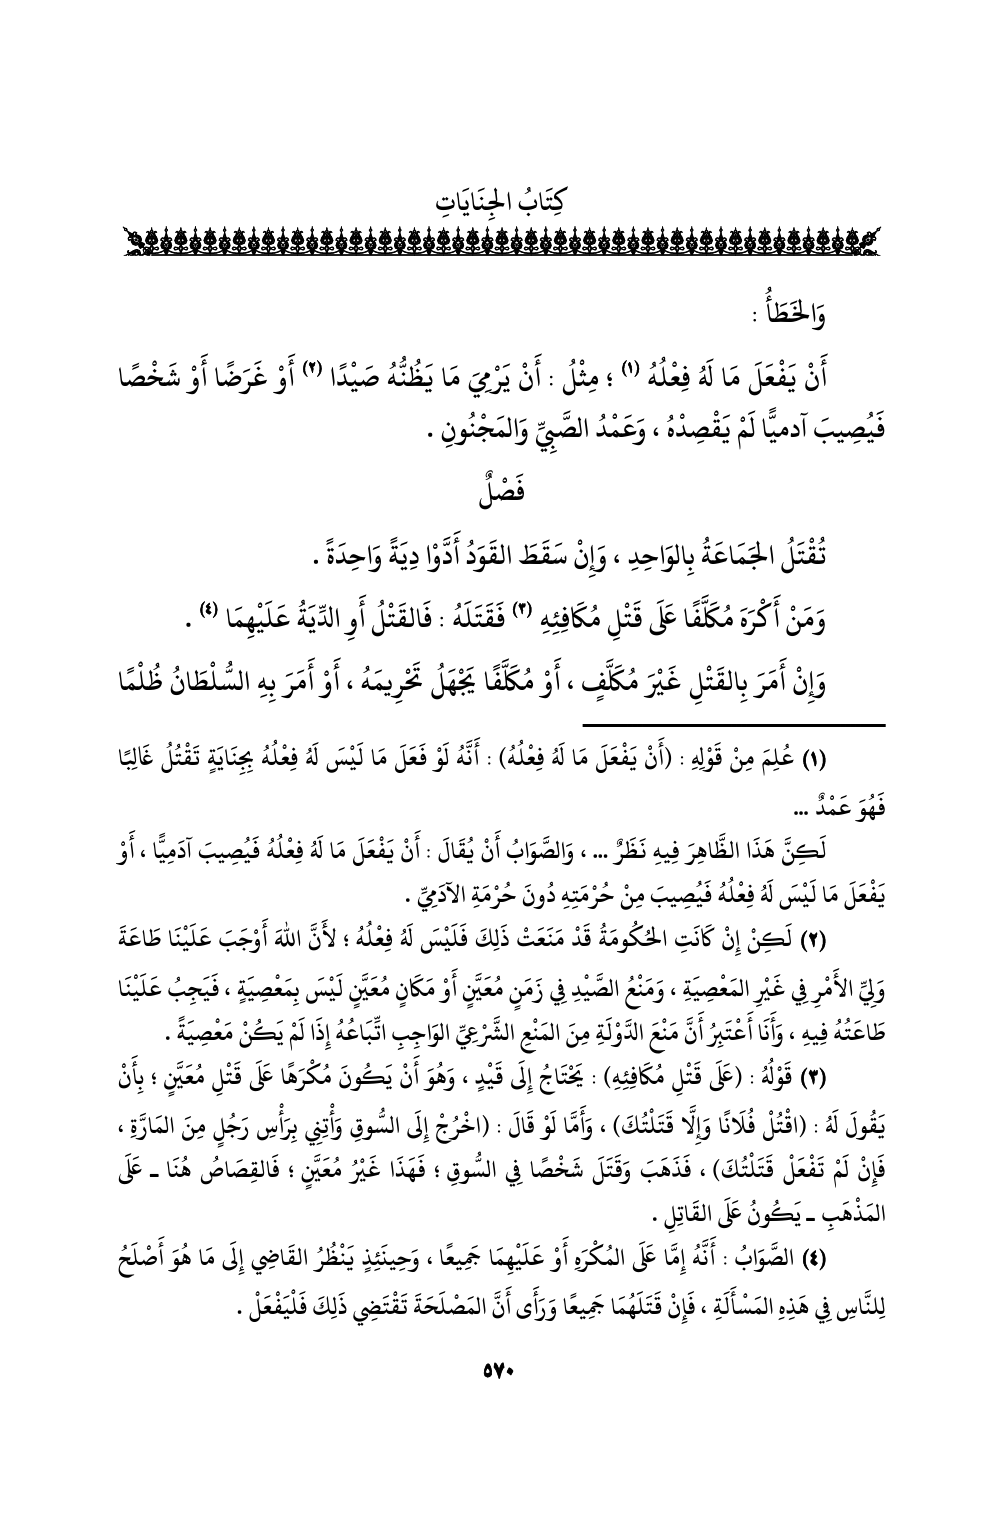 كِتَابُ الجِنَايَاتِ
وَالخَطَأُ :
أَنْ يَفْعَلَ مَا لَهُ فِعْلُهُ (١) ؛ مِثْلُ : أَنْ يَرْمِيَ مَا يَظُنُّهُ صَيْدًا (٢) أَوْ غَرَضًا أَوْ شَخْصًا
فَيُصِيبَ آدميًّا لَمْ يَقْصِدْهُ ، وَعَمْدُ الصَّبِيِّ وَالمَجْنُونِ .
فَصْلٌ
تُقْتَلُ الجَمَاعَةُ بِالوَاحِدِ ، وَإِنْ سَقَطَ القَوَدُ أَدَّوْا دِيَةً وَاحِدَةً .
وَمَنْ أَكْرَهَ مُكَلَّفًا عَلَى قَتْلِ مُكَافِئِهِ (٣) فَقَتَلَهُ : فَالقَتْلُ أَوِ الدِّيَةُ عَلَيْهِمَا (٤) .
وَإِنْ أَمَرَ بِالقَتْلِ غَيْرَ مُكَلَّفٍ ، أَوْ مُكَلَّفًا يَجْهَلُ تَحْرِيمَهُ ، أَوْ أَمَرَ بِهِ السُّلْطَانُ ظُلْمًا
(١) عُلِمَ مِنْ قَوْلِهِ : (أَنْ يَفْعَلَ مَا لَهُ فِعْلُهُ) : أَنَّهُ لَوْ فَعَلَ مَا لَيْسَ لَهُ فِعْلُهُ بِجِنَايَةٍ تَقْتُلُ غَالِبًا
فَهُوَ عَمْدٌ ...
لَكِنَّ هَذَا الظَّاهِرَ فِيهِ نَظَرٌ ... ، وَالصَّوَابُ أَنْ يُقَالَ : أَنْ يَفْعَلَ مَا لَهُ فِعْلُهُ فَيُصِيبَ آدَمِيًّا ، أَوْ
يَفْعَلَ مَا لَيْسَ لَهُ فِعْلُهُ فَيُصِيبَ مِنْ حُرْمَتِهِ دُونَ حُرْمَةِ الآدَمِيِّ .
(٢) لَكِنْ إِنْ كَانَتِ الحُكُومَةُ قَدْ مَنَعَتْ ذَلِكَ فَلَيْسَ لَهُ فِعْلُهُ ؛ لأَنَّ اللهَ أَوْجَبَ عَلَيْنَا طَاعَةَ
وَلِيِّ الأَمْرِ فِي غَيْرِ المَعْصِيَةِ ، وَمَنْعُ الصَّيْدِ فِي زَمَنٍ مُعَيَّنٍ أَوْ مَكَانٍ مُعَيَّنٍ لَيْسَ بِمَعْصِيَةٍ ، فَيَجِبُ عَلَيْنَا
طَاعَتُهُ فِيهِ ، وَأَنَا أَعْتَبِرُ أَنَّ مَنْعَ الدَّوْلَةِ مِنَ المَنْعِ الشَّرْعِيِّ الوَاجِبِ اتِّبَاعُهُ إِذَا لَمْ يَكُنْ مَعْصِيَةً .
(٣) قَوْلُهُ : (عَلَى قَتْلِ مُكَافِئِهِ) : يَحْتَاجُ إِلَى قَيْدٍ ، وَهُوَ أَنْ يَكُونَ مُكْرَهًا عَلَى قَتْلِ مُعَيَّنٍ ؛ بِأَنْ
يَقُولَ لَهُ : (اقْتُلْ فُلَانًا وَإِلَّا قَتَلْتُكَ) ، وَأَمَّا لَوْ قَالَ : (اخْرُجْ إِلَى السُّوقِ وَأْتِنِي بِرَأْسِ رَجُلٍ مِنَ المَارَّةِ ،
فَإِنْ لَمْ تَفْعَلْ قَتَلْتُكَ) ، فَذَهَبَ وَقَتَلَ شَخْصًا فِي السُّوقِ ؛ فَهَذَا غَيْرُ مُعَيَّنٍ ؛ فَالقِصَاصُ هُنَا ـ عَلَى
المَذْهَبِ ـ يَكُونُ عَلَى القَاتِلِ .
(٤) الصَّوَابُ : أَنَّهُ إِمَّا عَلَى المُكْرَهِ أَوْ عَلَيْهِمَا جَمِيعًا ، وَحِينَئِذٍ يَنْظُرُ القَاضِي إِلَى مَا هُوَ أَصْلَحُ
لِلنَّاسِ فِي هَذِهِ المَسْأَلَةِ ، فَإِنْ قَتَلَهُمَا جَمِيعًا وَرَأَى أَنَّ المَصْلَحَةَ تَقْتَضِي ذَلِكَ فَلْيَفْعَلْ .
٥٧٠